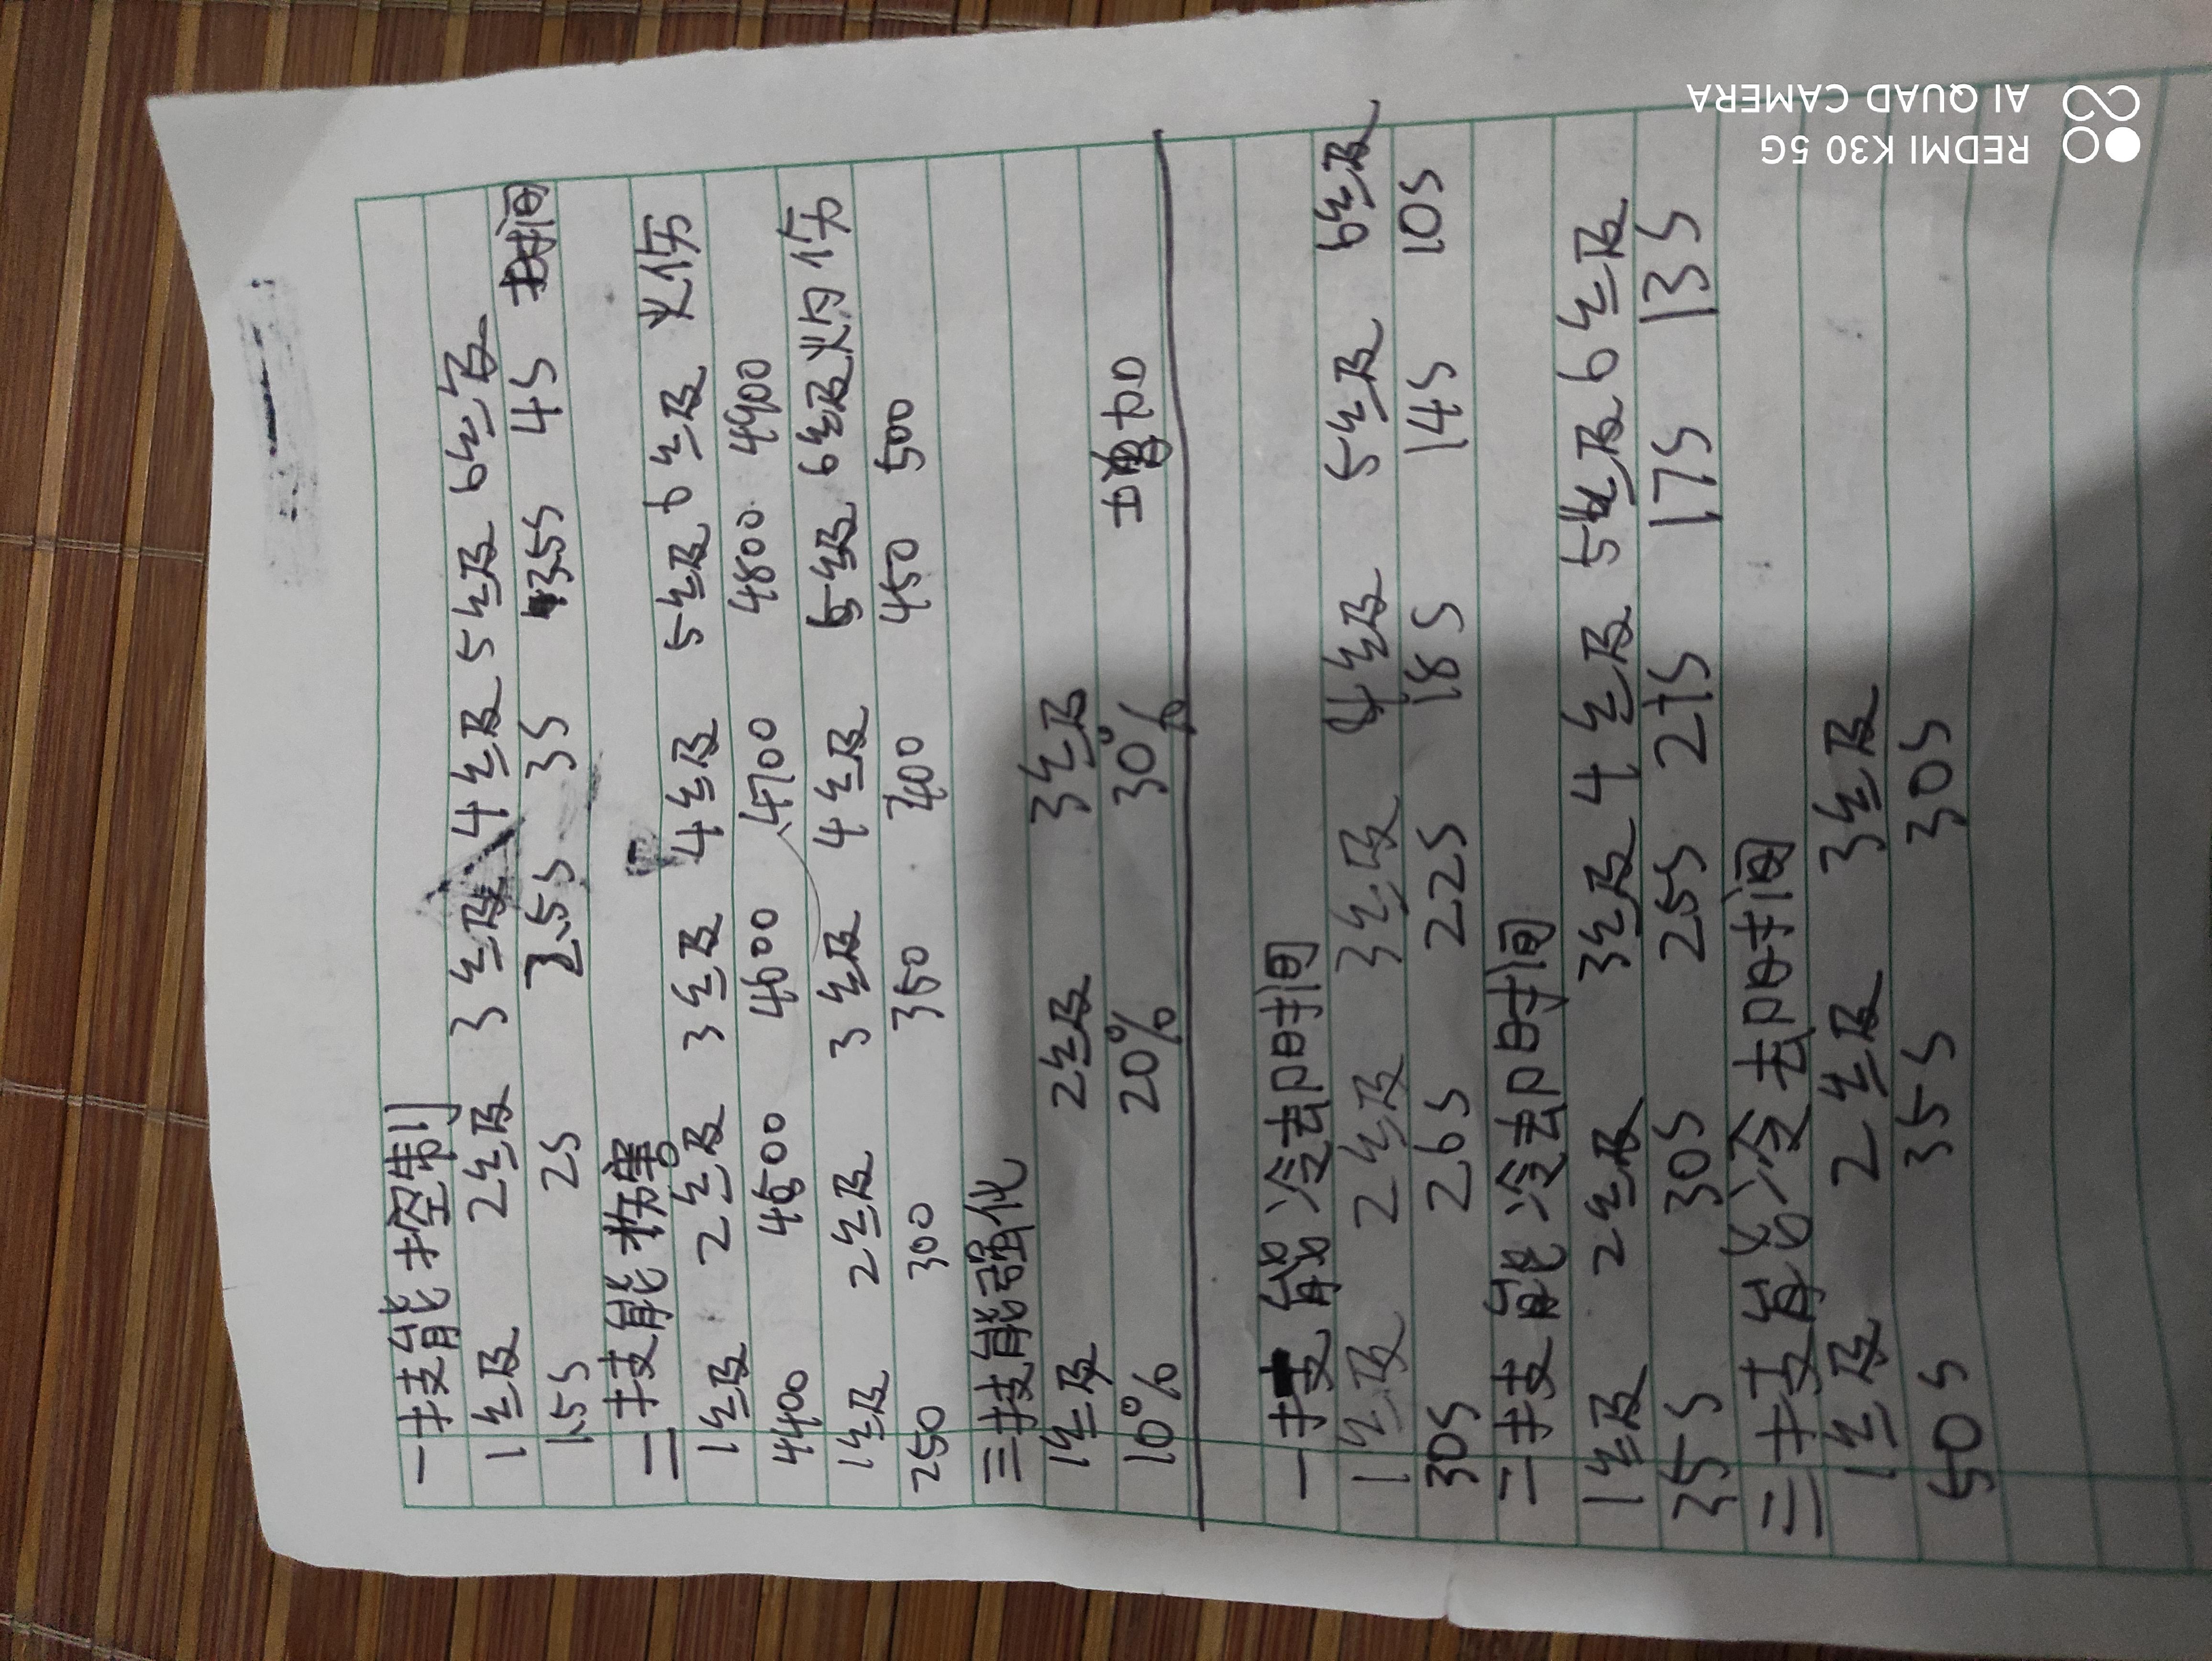 一技能控制
1级 2级 3级 4级 5级 6级
1.5S 2S 2.5S 3S 3.5S 4S 时间
二技能伤害
1级 2级 3级 4级 5级 6级 火伤
4400 4500 4600 4700 4800 4900
1级 2级 3级 4级 5级 6级 灼伤
250 300 350 400 450 500
三技能强化
1级 2级 3级
10% 20% 30% 增加
一技能冷却时间
1级 2级 3级 4级 5级 6级
30S 26S 22S 18S 14S 10S
二技能冷却时间
1级 2级 3级 4级 5级 6级
35S 30S 25S 21S 17S 13S
三技能冷却时间
1级 2级 3级
50S 35S 30S
REDMI K30 5G
AI QUAD CAMERA